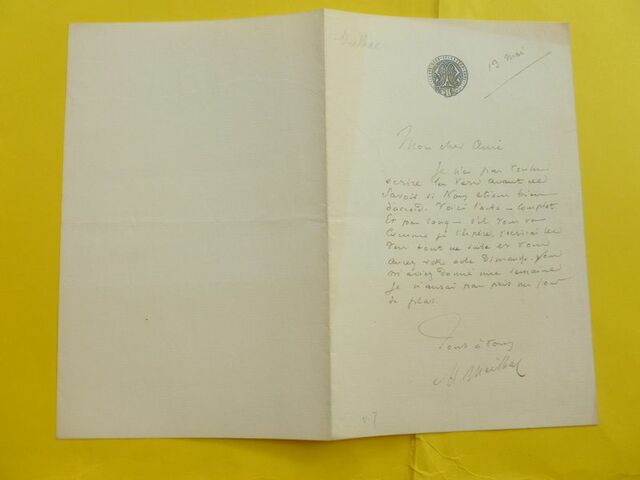 Meilhac
19 mai
Mon cher Ami
Je n'ai pas voulu
écrire les vers avant de
savoir si nous étions bien
d'accord. Voici l'acte - complet
et pas long - s'il vous va
comme je l'espère, j'écrirai les
vers tout de suite et vous
aurez votre acte Dimanche. Vous
m'aviez donné une semaine
je n'aurai pas pris un jour
de plus.
Tout à vous
H Meilhac